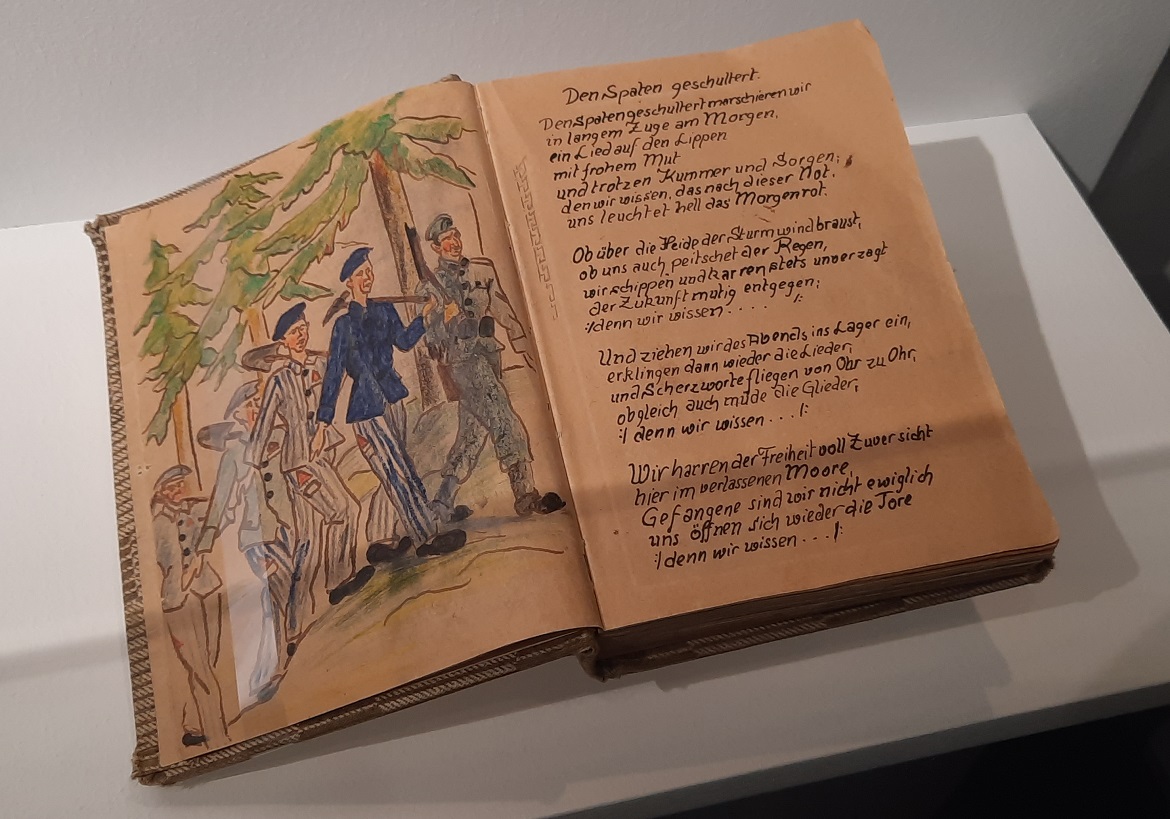 Den Spaten geschultert.
Den Spaten geschultert marschieren wir
in langem Zuge am Morgen,
ein Lied auf den Lippen
mit frohem Mut
und trotzen Kummer und Sorgen;
den wir wissen, das nach dieser Not,
uns leuchtet hell das Morgenrot.
Ob über die Heide der Sturmwind braust,
ob uns auch peitschet der Regen,
wir schippen und karren stets unverzagt
der Zukunft mutig entgegen;
:/denn wir wissen . . . . /:
Und ziehen wir des Abends ins Lager ein,
erklingen dann wieder die Lieder,
und Scherzworte fliegen von Ohr zu Ohr,
obgleich auch müde die Glieder;
:/ denn wir wissen . . . /:
Wir harren der Freiheit voll Zuversicht
hier im verlassenen Moore,
Gefangene sind wir nicht ewiglich
uns öffnen sich wieder die Tore
:/denn wir wissen . . . /: